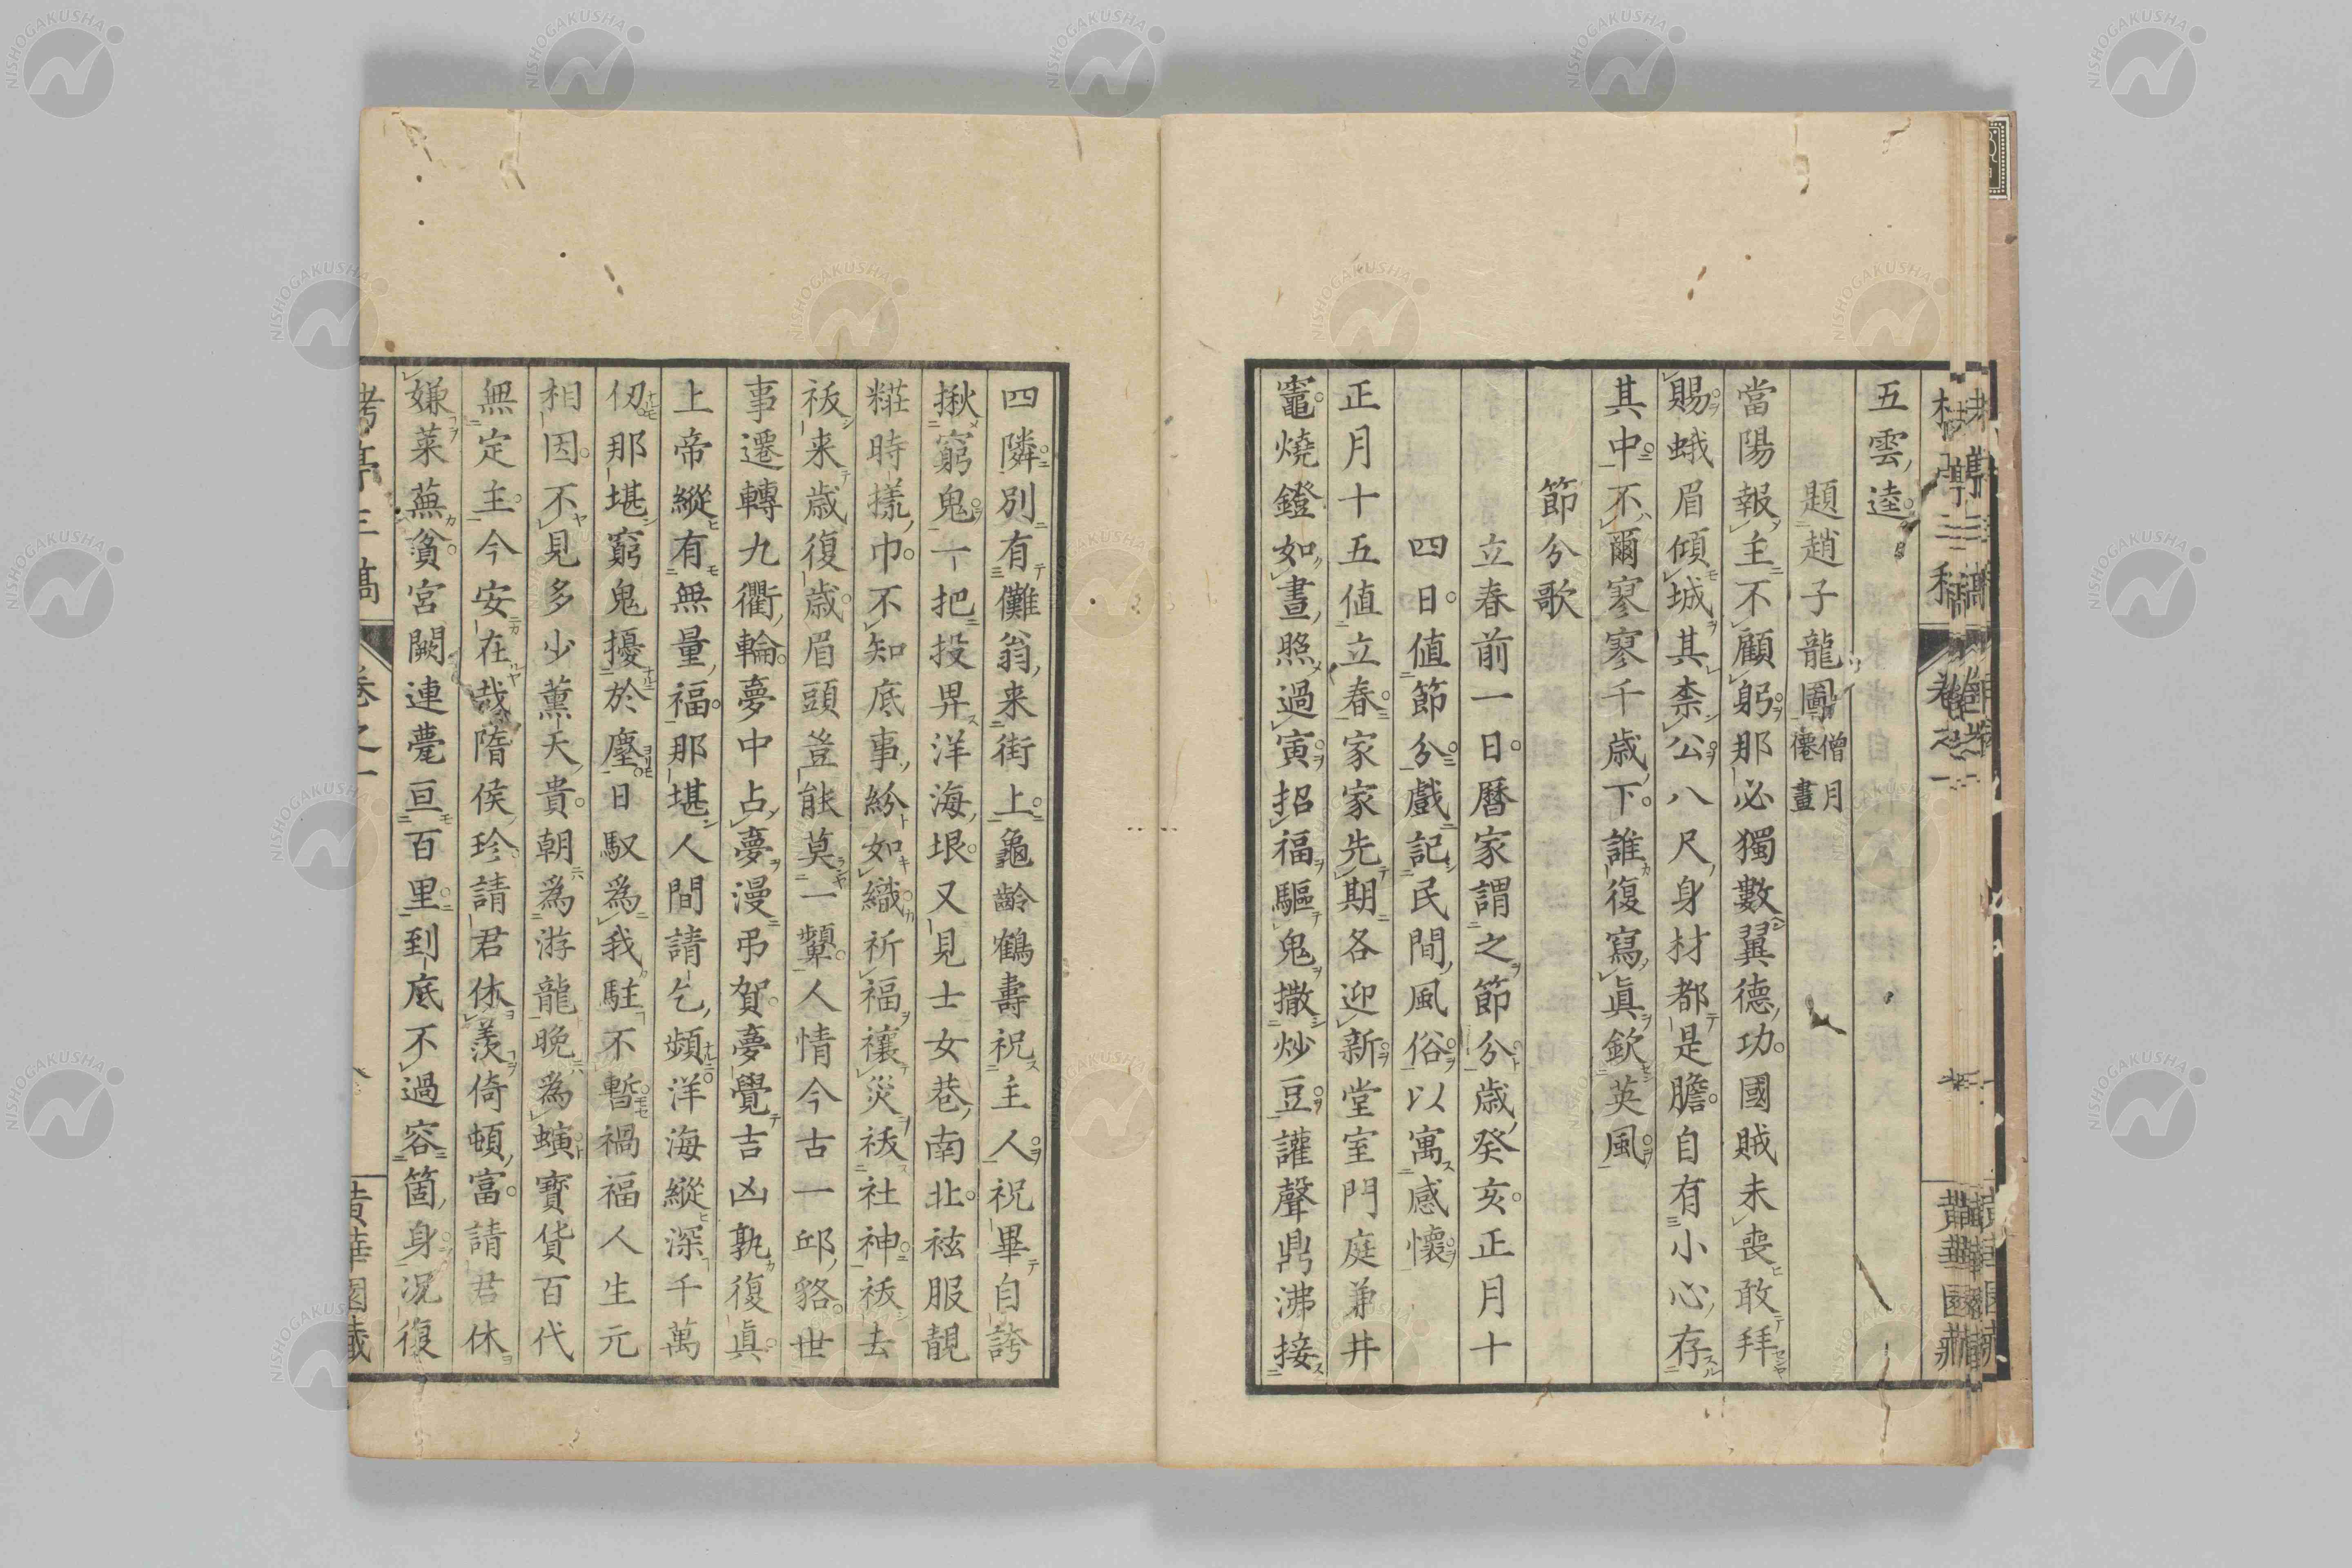 五雲逵
題趙子龍圖僧月僊畫
當陽報主不顧躬那必獨數翼德功國賊未喪敢拜
賜蛾眉傾城其柰公八尺身材都是膽自有小心存
其中不爾寥寥千歲下誰復寫眞欽英風
節分歌
立春前一日曆家謂之節分歲癸亥正月十
四日值節分戲記民間風俗以寓感懷
正月十五值立春家家先期各迎新堂室門庭兼井
竈燒鐙如晝照過寅招福驅鬼撒炒豆讙聲鼎沸接
四隣別有儺翁来街上龜齡鶴壽祝主人祝畢自誇
揪窮鬼一把投畀洋海垠又見士女巷南北袨服靚
糚時㨾巾不知底事紛如織祈福禳災祓社神祓去
祓来歳復歳眉頭豈能莫一顰人情今古一邱貉世
事遷轉九衢輪夢中占夢漫弔賀夢覺吉凶孰復眞
上帝縱有無量福那堪人間請乞頻洋海縱深千萬
仭那堪窮鬼擾於塵日馭爲我駐不暫禍福人生元
相因不見多少薰天貴朝爲游龍晚爲螾寶貨百代
無定主今安在哉隋侯珍請君休羨倚頓富請君休
嫌萊蕪貧宮闕連甍亘百里到底不過容箇身況復
卷之一
黄華園藏
NISHOGAKUSHA